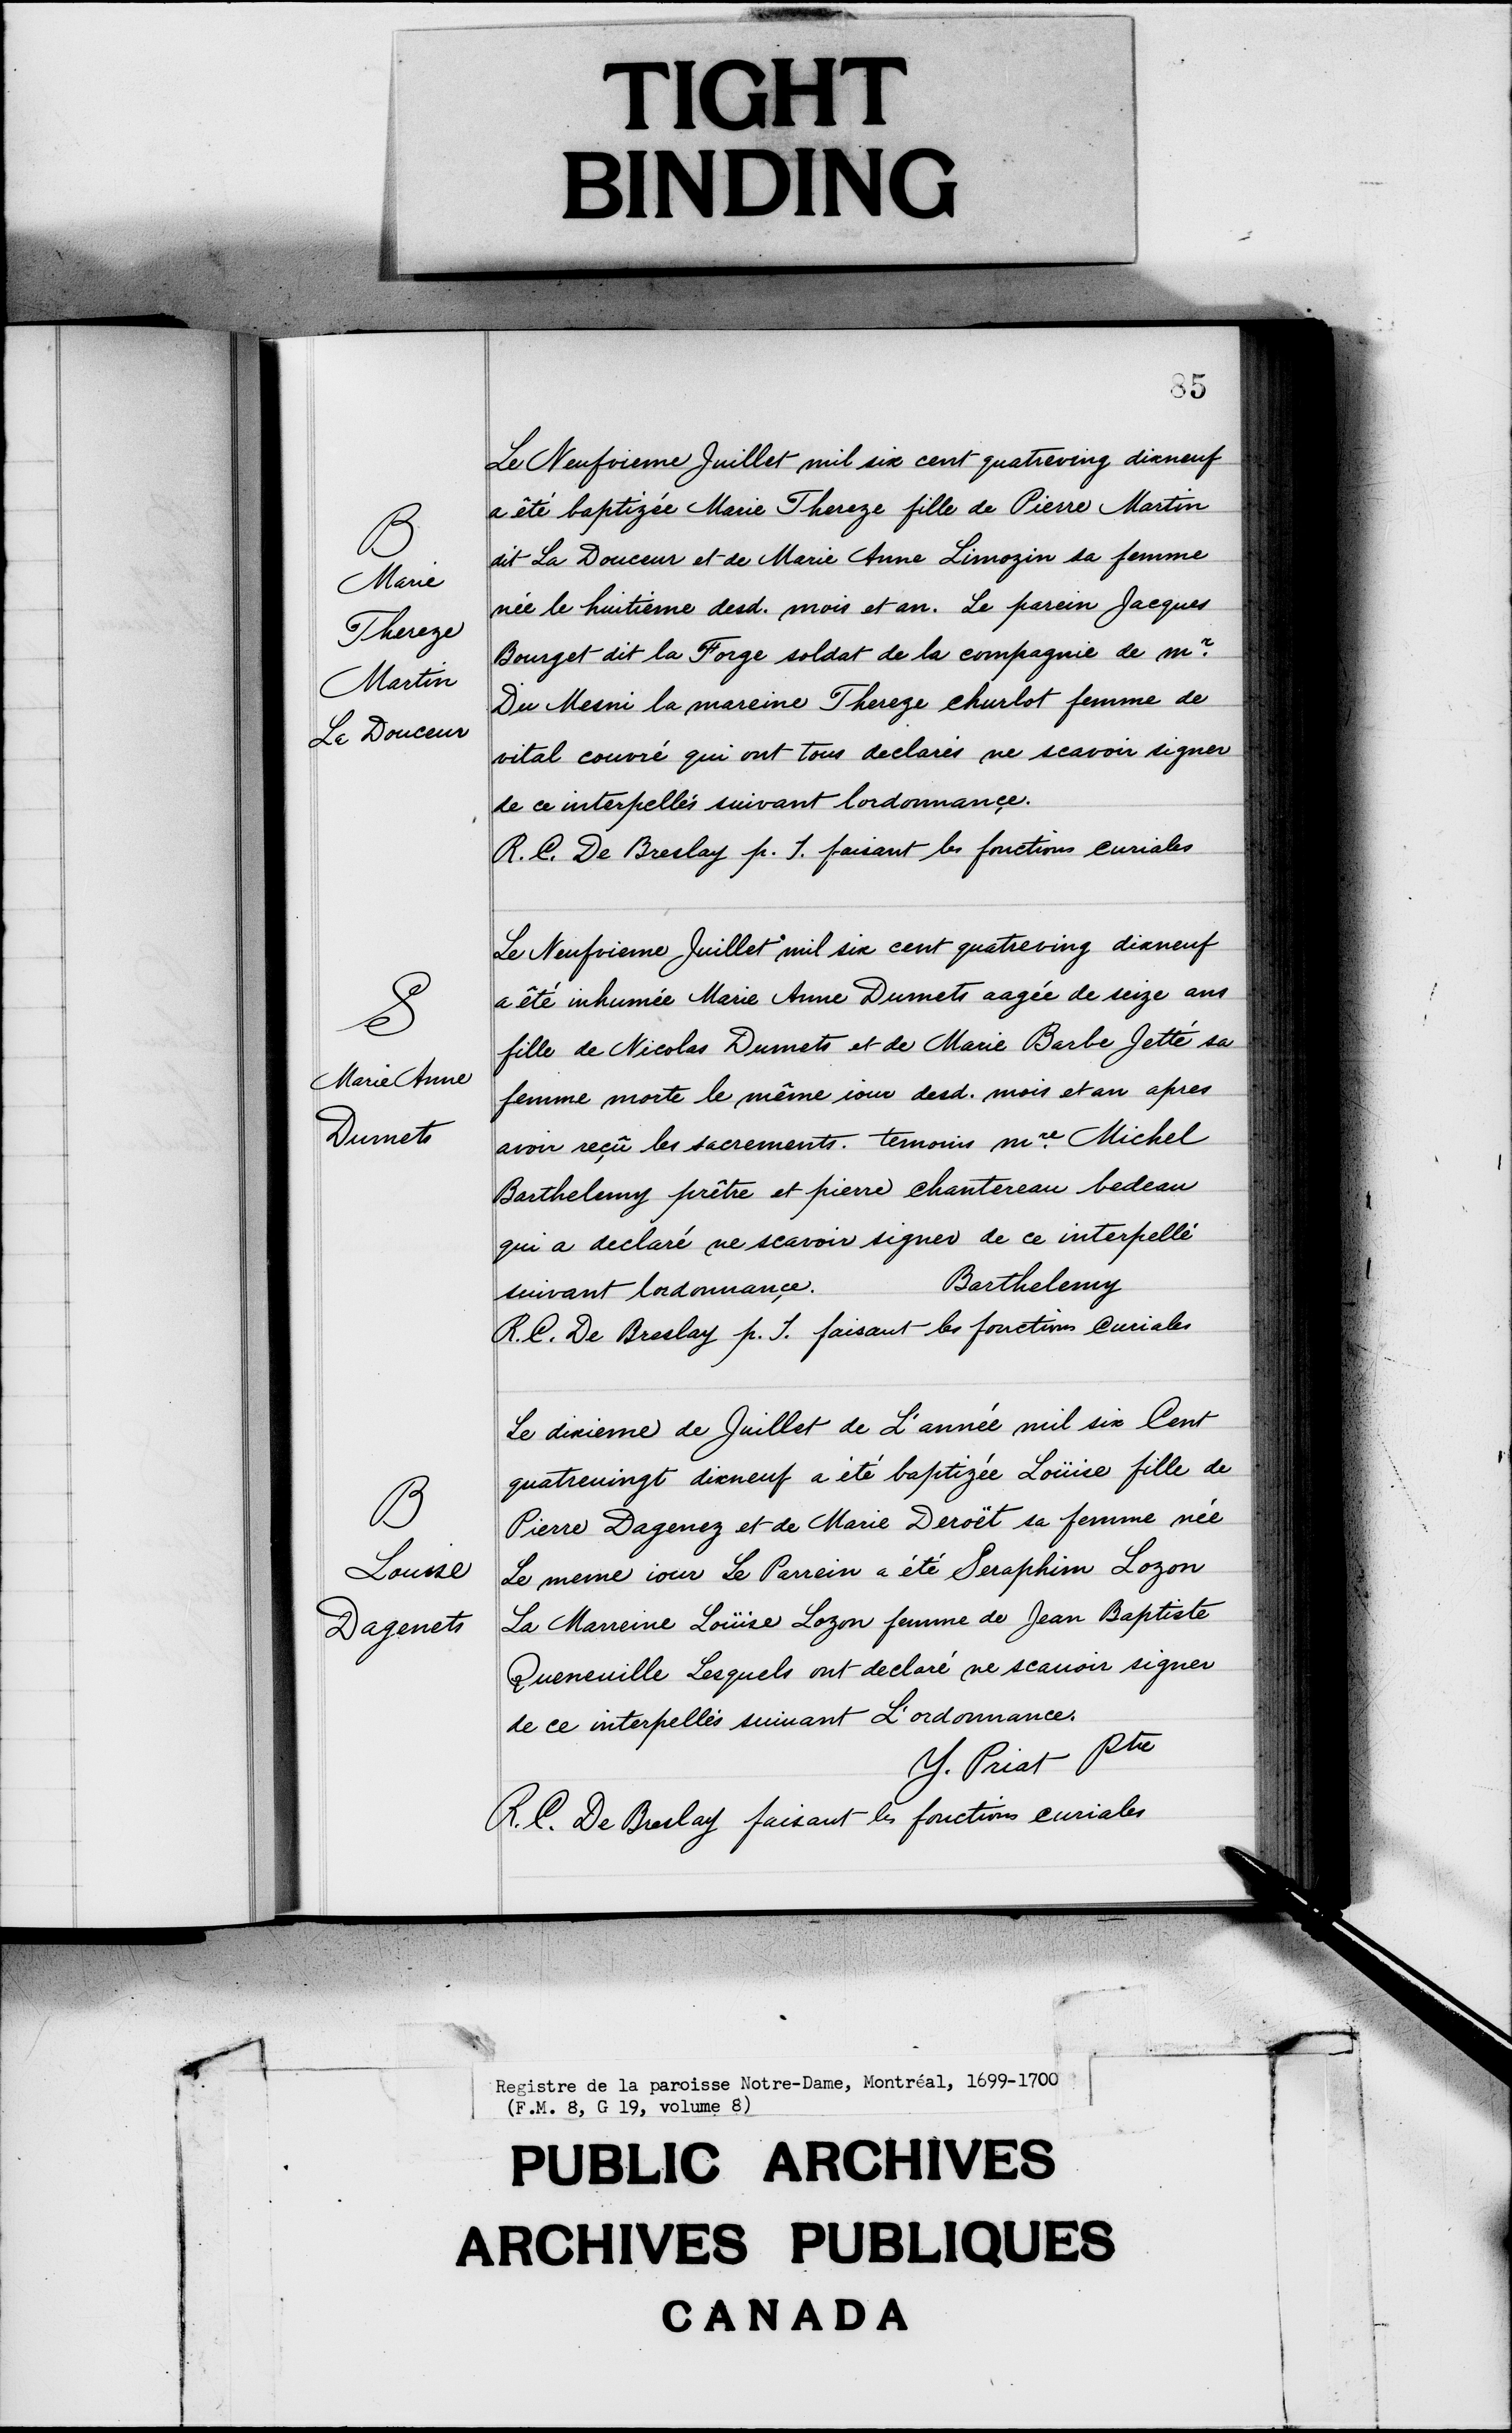 TIGHT
BINDING
85
Le Neufvieme Juillet mil six cent quatreving dixneuf
a êté baptizée Marie Thereze fille de Pierre Martin
dit La Douceur et de Marie Anne Limozin sa femme
née le huitieme desd. mois et an. Le parein Jacques
Bourget dit la Forge soldat de la compagnie de mr.
Du Mesni la mareine Thereze Churlot femme de
vital couvré qui ont tous declarés ne scavoir signer
de ce interpellés suivant lordonnançe.
R. C. De Breslay p. S. faisant les fonctions curiales
B
Marie
Thereze
Martin
La Douceur
Le Neufvieme Juillet mil six cent quatreving dixneuf
a êté inhumée Marie Anne Dumets aagée de seize ans
fille de Nicolas Dumets et de Marie Barbe Jetté sa
femme morte le même iour desd. mois et an apres
avoir reçû les sacrements. temoins mre. Michel
Barthelemy prêtre et pierre chantereau bedeau
qui a declaré ne scavoir signer de ce interpellé
suivant lordonnançe. Barthelemy
R. C. De Breslay p. S. faisant les fonctions Curiales
S
Marie Anne
Dumets
Le dixieme de Juillet de L'année mil six Cent
quatreuingt dixneuf a été baptizée Loüise fille de
Pierre Dagenez et de Marie Deroët sa femme née
Le meme iour Le Parrein a été Seraphim Lozon
La Marreine Loüise Lozon femme de Jean Baptiste
Queneuille Lesquels ont declaré ne scauoir signer
de ce interpellés suiuant L'ordonnance.
Y. Priat Ptre
R. C. De Breslay faisant les fonctions curiales
B
Louise
Dagenets
Registre de la paroisse Notre-Dame, Montréal, 1699-1700
(F.M. 8, G 19, volume 8)
PUBLIC ARCHIVES
ARCHIVES PUBLIQUES
CANADA